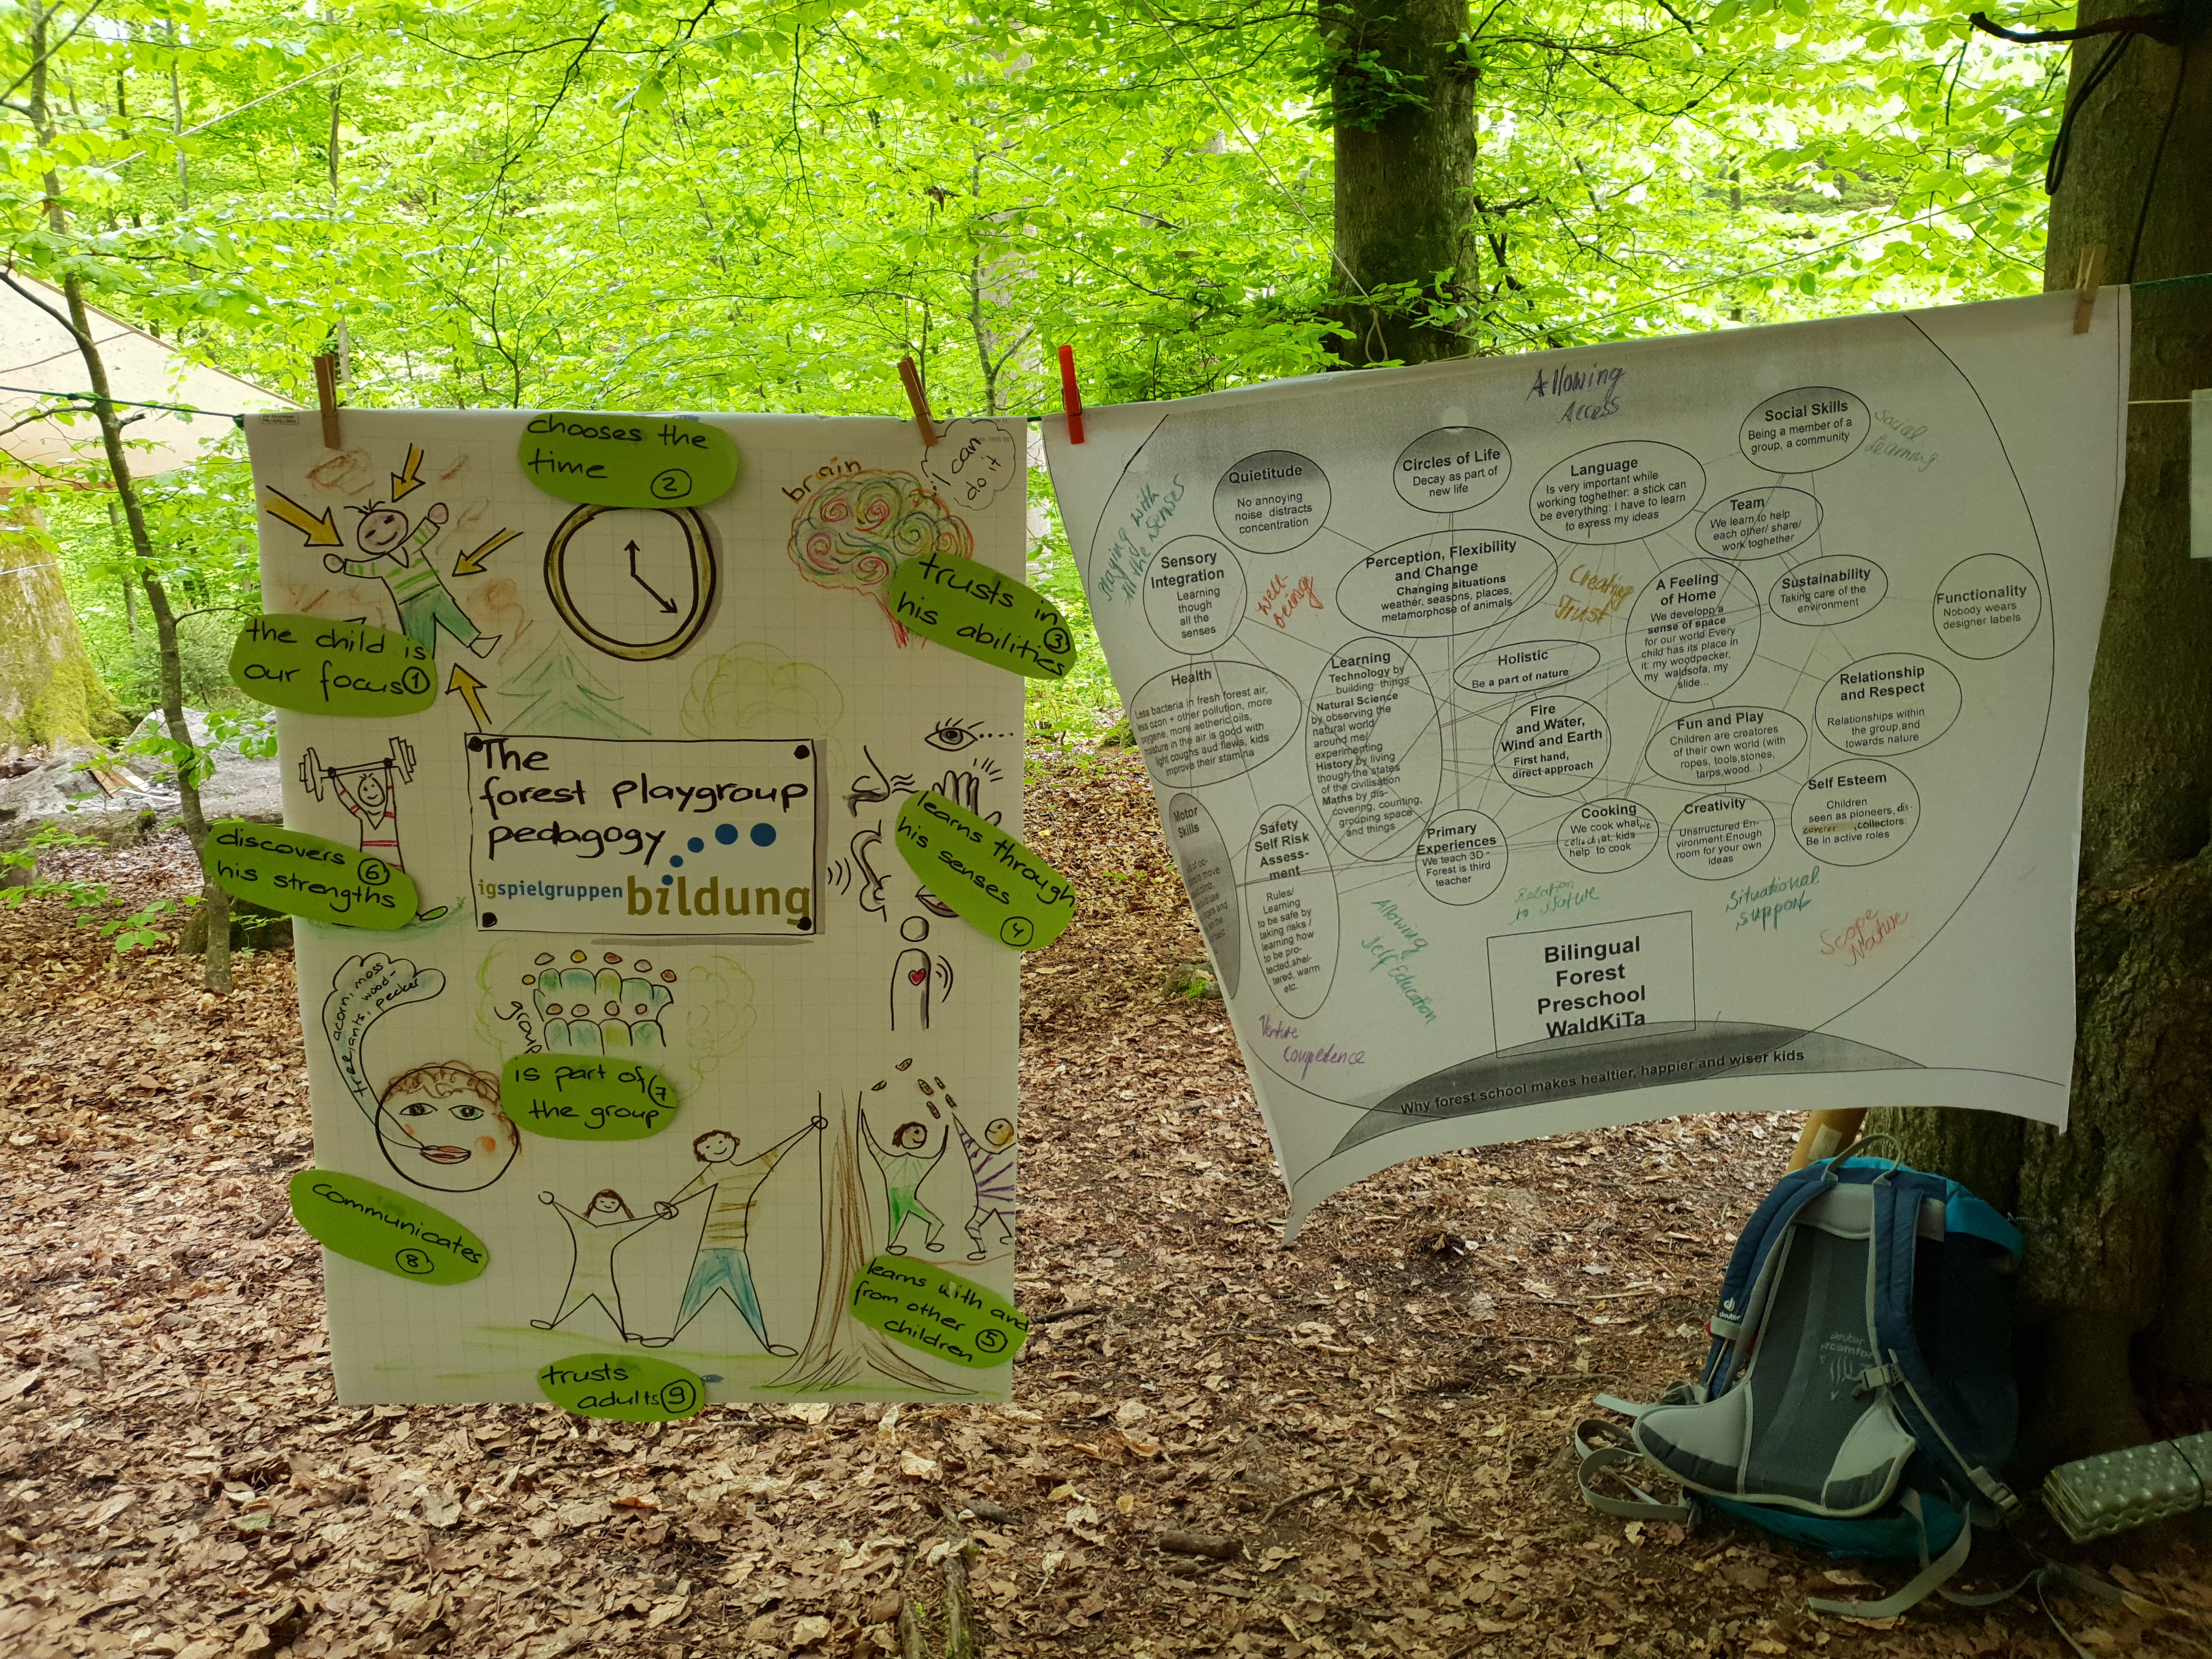 chooses the
time
2
brain
I can
do it
trusts in
his abilities
3
the child is
our focus 1
The
forest playgroup
pedagogy
igspielgruppen bildung
discovers
his strengths
6
learns through
his senses
4
tree, acorn, moss
ants, wood-
pecker
group
is part of
the group
7
communicates
8
learns with and
from other
children 5
trusts
adults 9
Allowing
Access
Playing with
all the senses
Quietitude
No annoying
noise distracts
concentration
Circles of Life
Decay as part of
new life
Language
Is very important while
working toghether: a stick can
be everything: I have to learn
to exress my ideas
Social Skills
Being a member of a
group, a community
Social
Learning
Team
We learn to help
each other/ share/
work toghether
Sensory
Integration
Learning
though
all the
senses
Well-
being
Perception, Flexibility
and Change
Changing situations
weather, seasons, places,
metamorphose of animals
Creating
Trust
A Feeling
of Home
We developp a
sense of space
for our world Every
child has its place in
it: my woodpecker,
my waldsofa, my
slide...
Sustainability
Taking care of the
environment
Functionality
Nobody wears
designer labels
Health
Less bacteria in fresh forest air,
less ozon + other pollution, more
oxygene, more aetheric oils,
moisture in the air is good with
light coughs aud flews, kids
improve their stamina
Learning
Technology by
building things
Natural Science
by observing the
natural world
around me/
experimenting
History by living
though the states
of the civilisation
Maths by dis-
covering, counting,
grouping space
and things
Holistic
Be a part of nature
Fire
and Water,
Wind and Earth
First hand,
direct approach
Fun and Play
Children are creatores
of their own world (with
ropes, tools,stones,
tarps,wood...)
Relationship
and Respect
Relationships within
the group,and
towards nature
Motor
Skills
Safety
Self Risk
Assess-
ment
Rules/
Learning
to be safe by
taking risks /
learning how
to be pro-
tected,shel-
tered, warm
etc.
Primary
Experiences
We teach 3D -
Forest is third
teacher
Cooking
We cook what we
collect/eat, kids
help to cook
Creativity
Unstructured En-
vironment:Enough
room for your own
ideas
Self Esteem
Children
seen as pioneers, dis-
coverer ,collectors:
Be in active roles
Allowing
Self Education
Relation
to Nature
Situational
support
Scope
Nature
Venture
Competence
Bilingual
Forest
Preschool
WaldKiTa
Why forest school makes healtier, happier and wiser kids
deuter
deuter